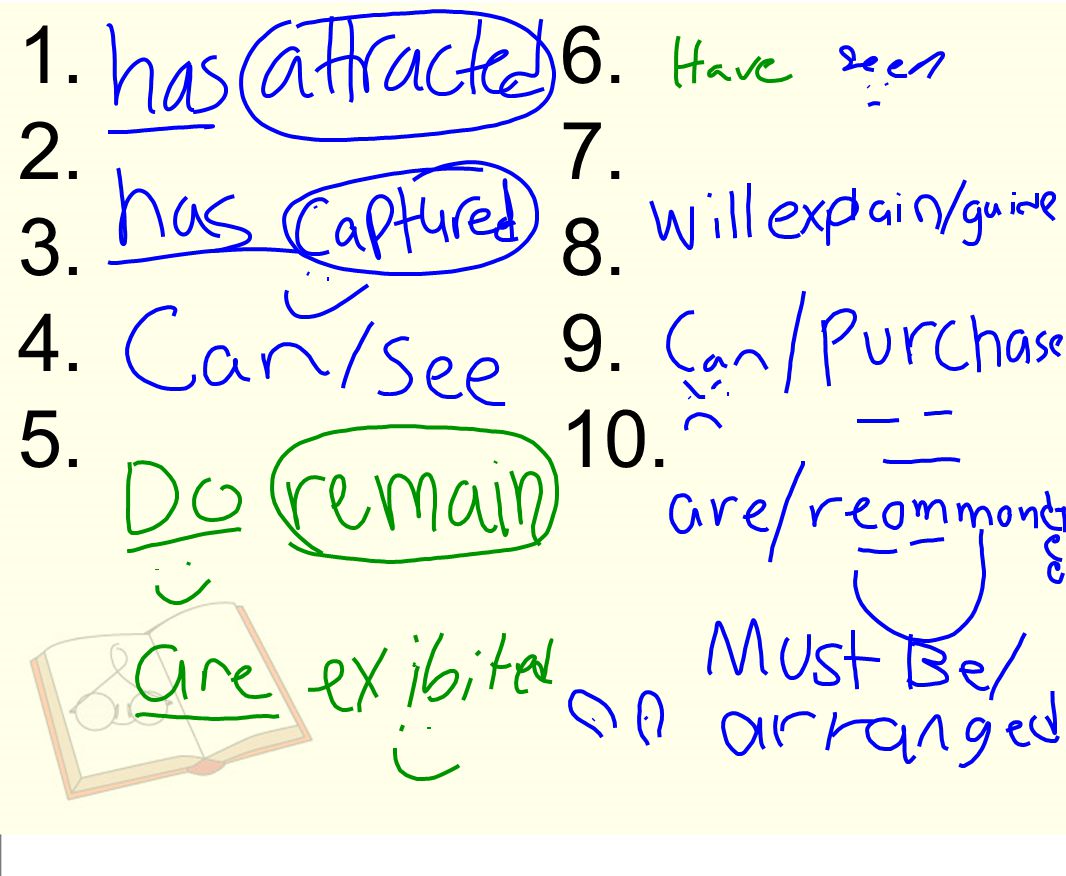 1. has attracted
2.
has captured
3.
4. Can/see
5.
Do remain
are exibited
6. Have seen
7.
Will explain/guide
8.
9. Can/Purchase
10.
are/reommonded
Must Be/
arranged